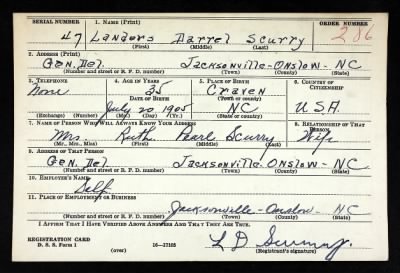 SERIAL NUMBER 1. NAME (Print) ORDER NUMBER
47 Landers Darrel Scurry 286
(First) (Middle) (Last)
2. ADDRESS (Print)
Gen. Del. Jacksonville-Onslow-NC
(Number and street or R. F. D. number) (Town) (County) (State)
3. TELEPHONE 4. AGE IN YEARS 5. PLACE OF BIRTH 6. COUNTRY OF CITIZENSHIP
None 35 Craven
DATE OF BIRTH (Town or county)
July 20 1905 NC U.S.A.
(Exchange) (Number) (Mo.) (Day) (Yr.) (State or country)
7. NAME OF PERSON WHO WILL ALWAYS KNOW YOUR ADDRESS 8. RELATIONSHIP OF THAT PERSON
Mrs. Ruth Pearl Scurry Wife
(Mr., Mrs., Miss) (First) (Middle) (Last)
9. ADDRESS OF THAT PERSON
Gen. Del Jacksonville-Onslow-NC
(Number and street or R. F. D. number) (Town) (County) (State)
10. EMPLOYER'S NAME
Self
11. PLACE OF EMPLOYMENT OR BUSINESS
Jacksonville-Onslow-NC
(Number and street or R. F. D. number) (Town) (County) (State)
I AFFIRM THAT I HAVE VERIFIED ABOVE ANSWERS AND THAT THEY ARE TRUE.
REGISTRATION CARD
D. S. S. Form 1 (over) 16—17105 L D Scurry
(Registrant's signature)